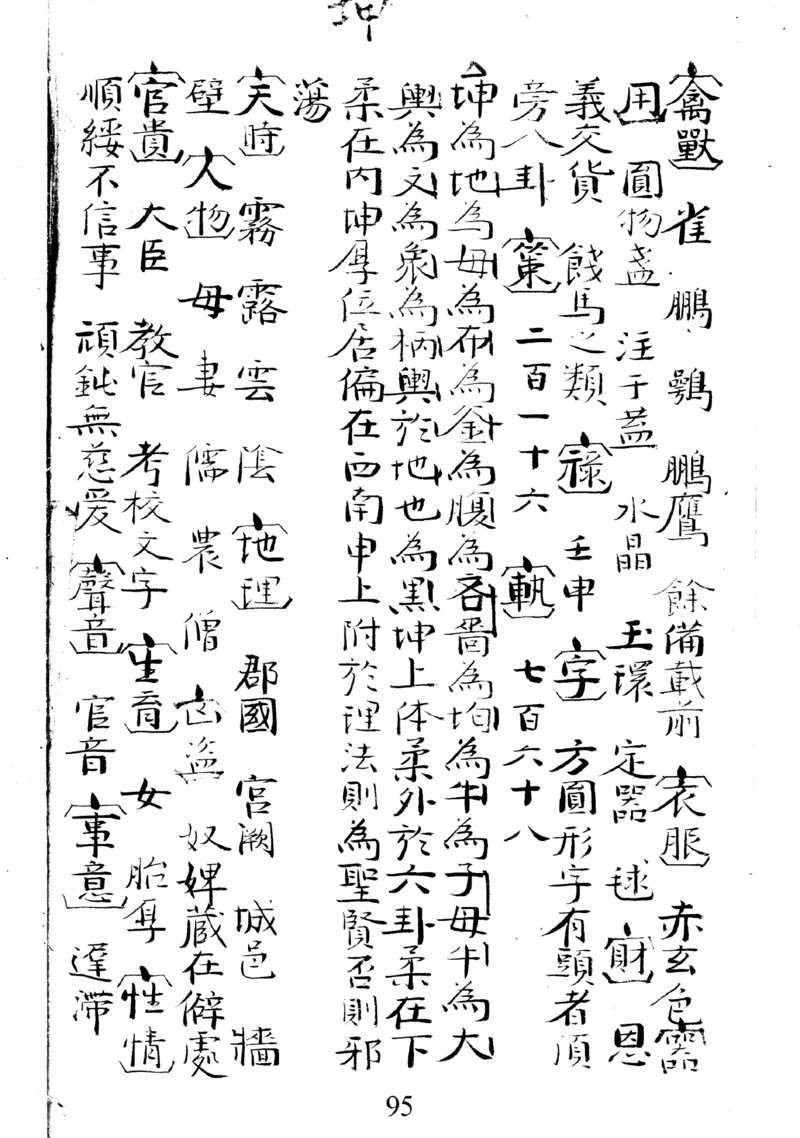 坤
禽獸 雀 鵬 鶚 鵬鷹 餘備載前 衣服 赤玄色 器
用 圓物盞 注子蓋 水晶 玉環 定器 毬 財 恩
義交貨 餞馬之類 祿 壬申 字 方圓形字有頭者頂
旁八卦 策 二百一十六 軌 七百六十八
坤為地為母為布為釜為腹為吝嗇為均為牛為子母牛為大
輿為文為衆為柄輿於地也為黑坤上体柔外於六卦柔在下
柔在内坤厚位居偏在西南申上附於理法則為聖賢否則邪
蕩
天時 霧 露 雲 陰 地理 郡國 宮闕 城邑 牆
壁 人物 母 妻 儒 農 僧 凶盜 奴婢藏在僻處
官貴 大臣 教官 考校文字 生育 女 胎厚 性情
順綏不信事 頑鈍無慈愛 聲音 宮音 事意 遅滞
95